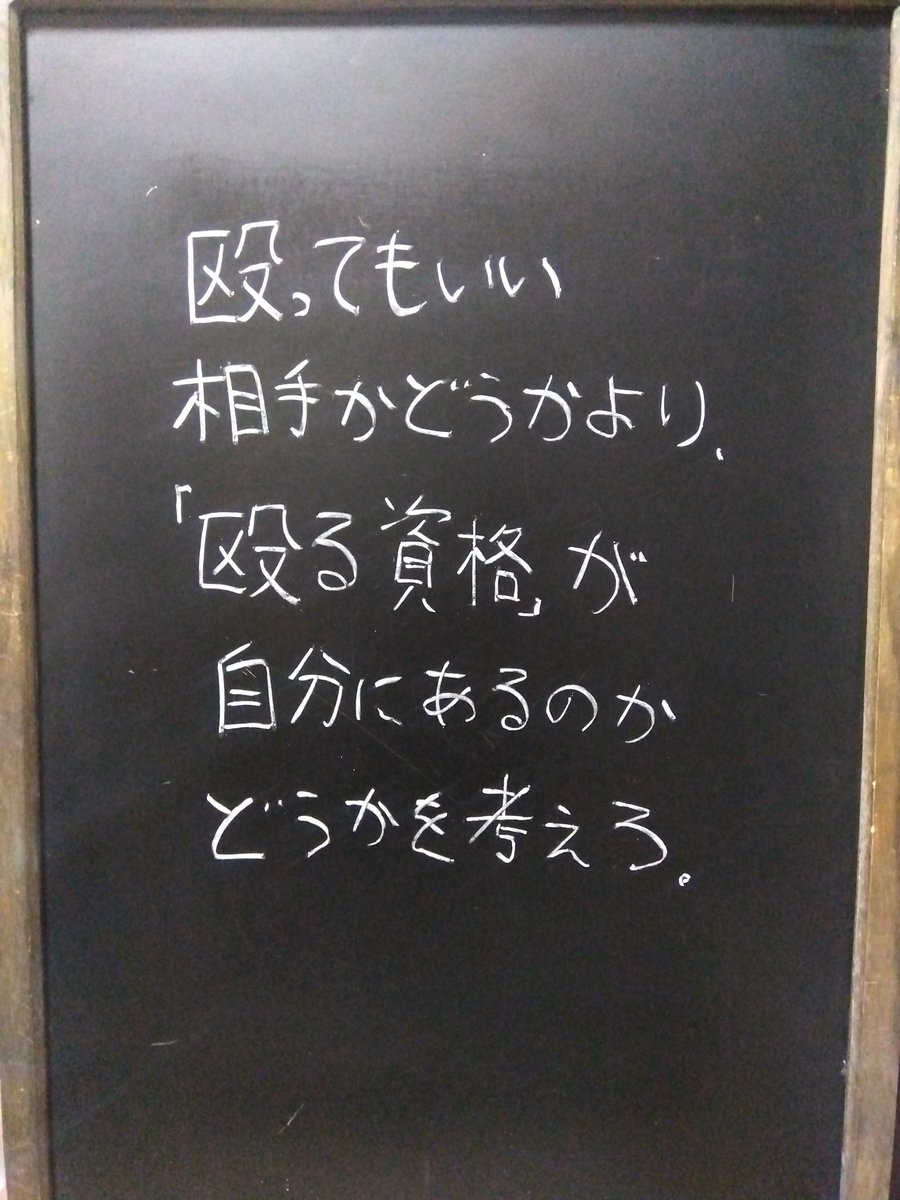 殴ってもいい
相手かどうかより、
「殴る資格」が
自分にあるのか
どうかを考えろ。